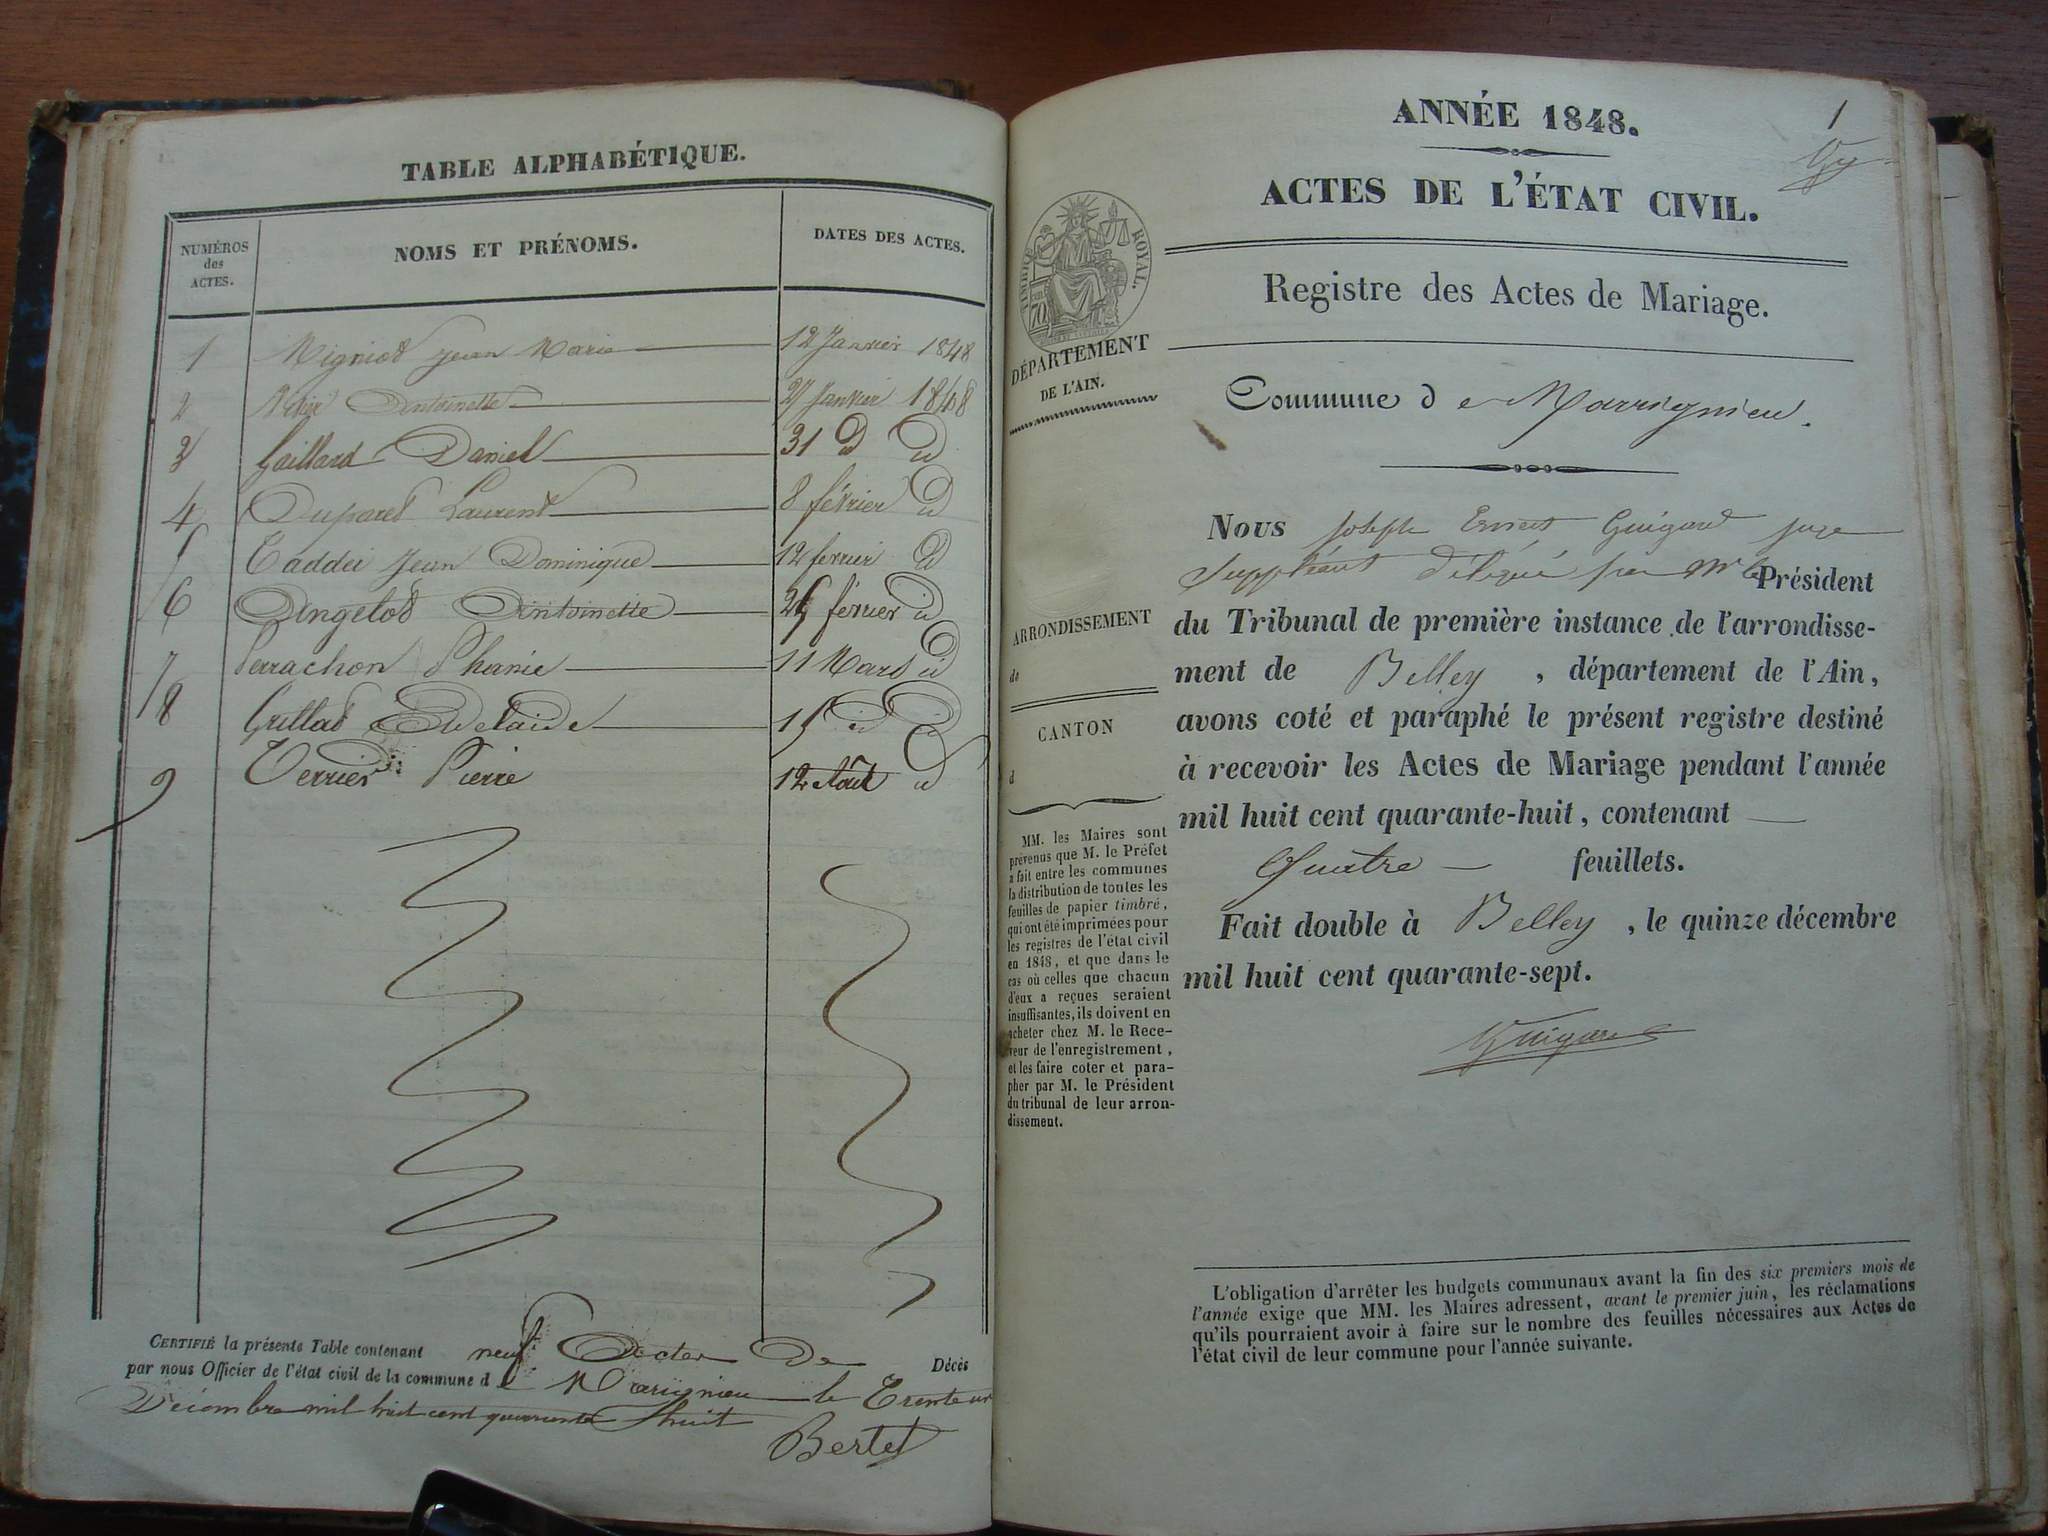 TABLE ALPHABÉTIQUE.
NUMÉROS
des
ACTES.
NOMS ET PRÉNOMS.
DATES DES ACTES.
1 Migniot Jean Marie 12 Janvier 1848
2 Antoinette 27 Janvier 1848
3 Gaillard Daniel 31 id id
4 Duparet Laurent 8 février id
5 Taddei Jean Dominique 12 ferrier id
6 Angelot Antoinette 25 ferrier id
7 Perrachon 11 Mars id
8 Grillat Adelaide 15 id id
9 Terrier Pierre 12 Aout id
CERTIFIÉ la présente Table contenant neuf Actes De Décès
par nous Officier de l'état civil de la commune de Marignieu le Trente un
Décembre mil huit cent quarante huit
Bertet
1
ANNÉE 1848.
ACTES DE L'ÉTAT CIVIL.
Registre des Actes de Mariage.
TIMBRE ROYAL.
70
DÉPARTEMENT
DE L'AIN.
Commune de Marrignieu.
Nous Joseph Ernest Guigard juge
Suppléant délégué par Mr le Président
du Tribunal de première instance de l'arrondisse-
ment de Belley, département de l'Ain,
avons coté et paraphé le présent registre destiné
à recevoir les Actes de Mariage pendant l'année
mil huit cent quarante-huit, contenant
Quatre feuillets.
Fait double à Belley, le quinze décembre
mil huit cent quarante-sept.
Guigard
ARRONDISSEMENT
de
CANTON
d
MM. les Maires sont
prévenus que M. le Préfet
a fait entre les communes
la distribution de toutes les
feuilles de papier timbré,
qui ont été imprimées pour
les registres de l'état civil
en 1848, et que dans le
cas où celles que chacun
d'eux a reçues seraient
insuffisantes, ils doivent en
acheter chez M. le Rece-
veur de l'enregistrement,
et les faire coter et para-
pher par M. le Président
du tribunal de leur arron-
dissement.
L'obligation d'arrêter les budgets communaux avant la fin des six premiers mois de
l'année exige que MM. les Maires adressent, avant le premier juin, les réclamations
qu'ils pourraient avoir à faire sur le nombre des feuilles nécessaires aux Actes de
l'état civil de leur commune pour l'année suivante.